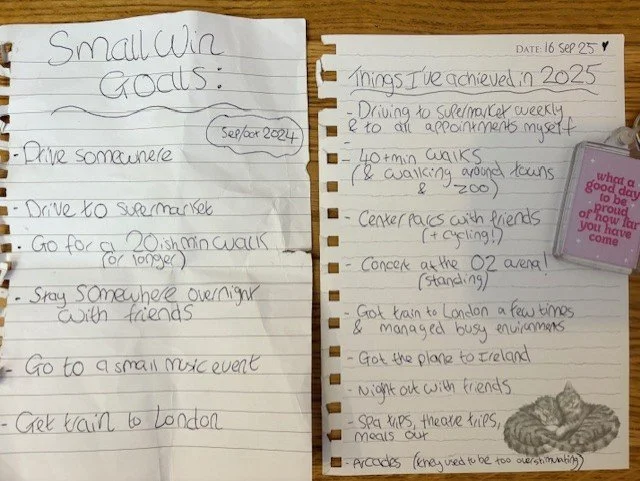 Small Win
Goals:
Sep/Oct 2024
- Drive somewhere
- Drive to supermarket
- Go for a 20ish min walk
(or longer)
- Stay somewhere overnight
with friends
- Go to a small music event
- Get train to London
DATE: 16 Sep 25 ♥
Things I've achieved in 2025
- Driving to supermarket weekly
& to all appointments myself
- 40+ min walks
(& walking around towns
& zoo)
- Center Parcs with friends
(+ cycling!)
- Concert at the O2 arena!
(standing)
- Got train to London a few times
& managed busy enviroments
- Got the plane to Ireland
- Night out with friends
- Spa trips, theatre trips,
meals out
- Arcades (they used to be too overstimulating)
what a
good day
to be
proud
of how far
you have
come